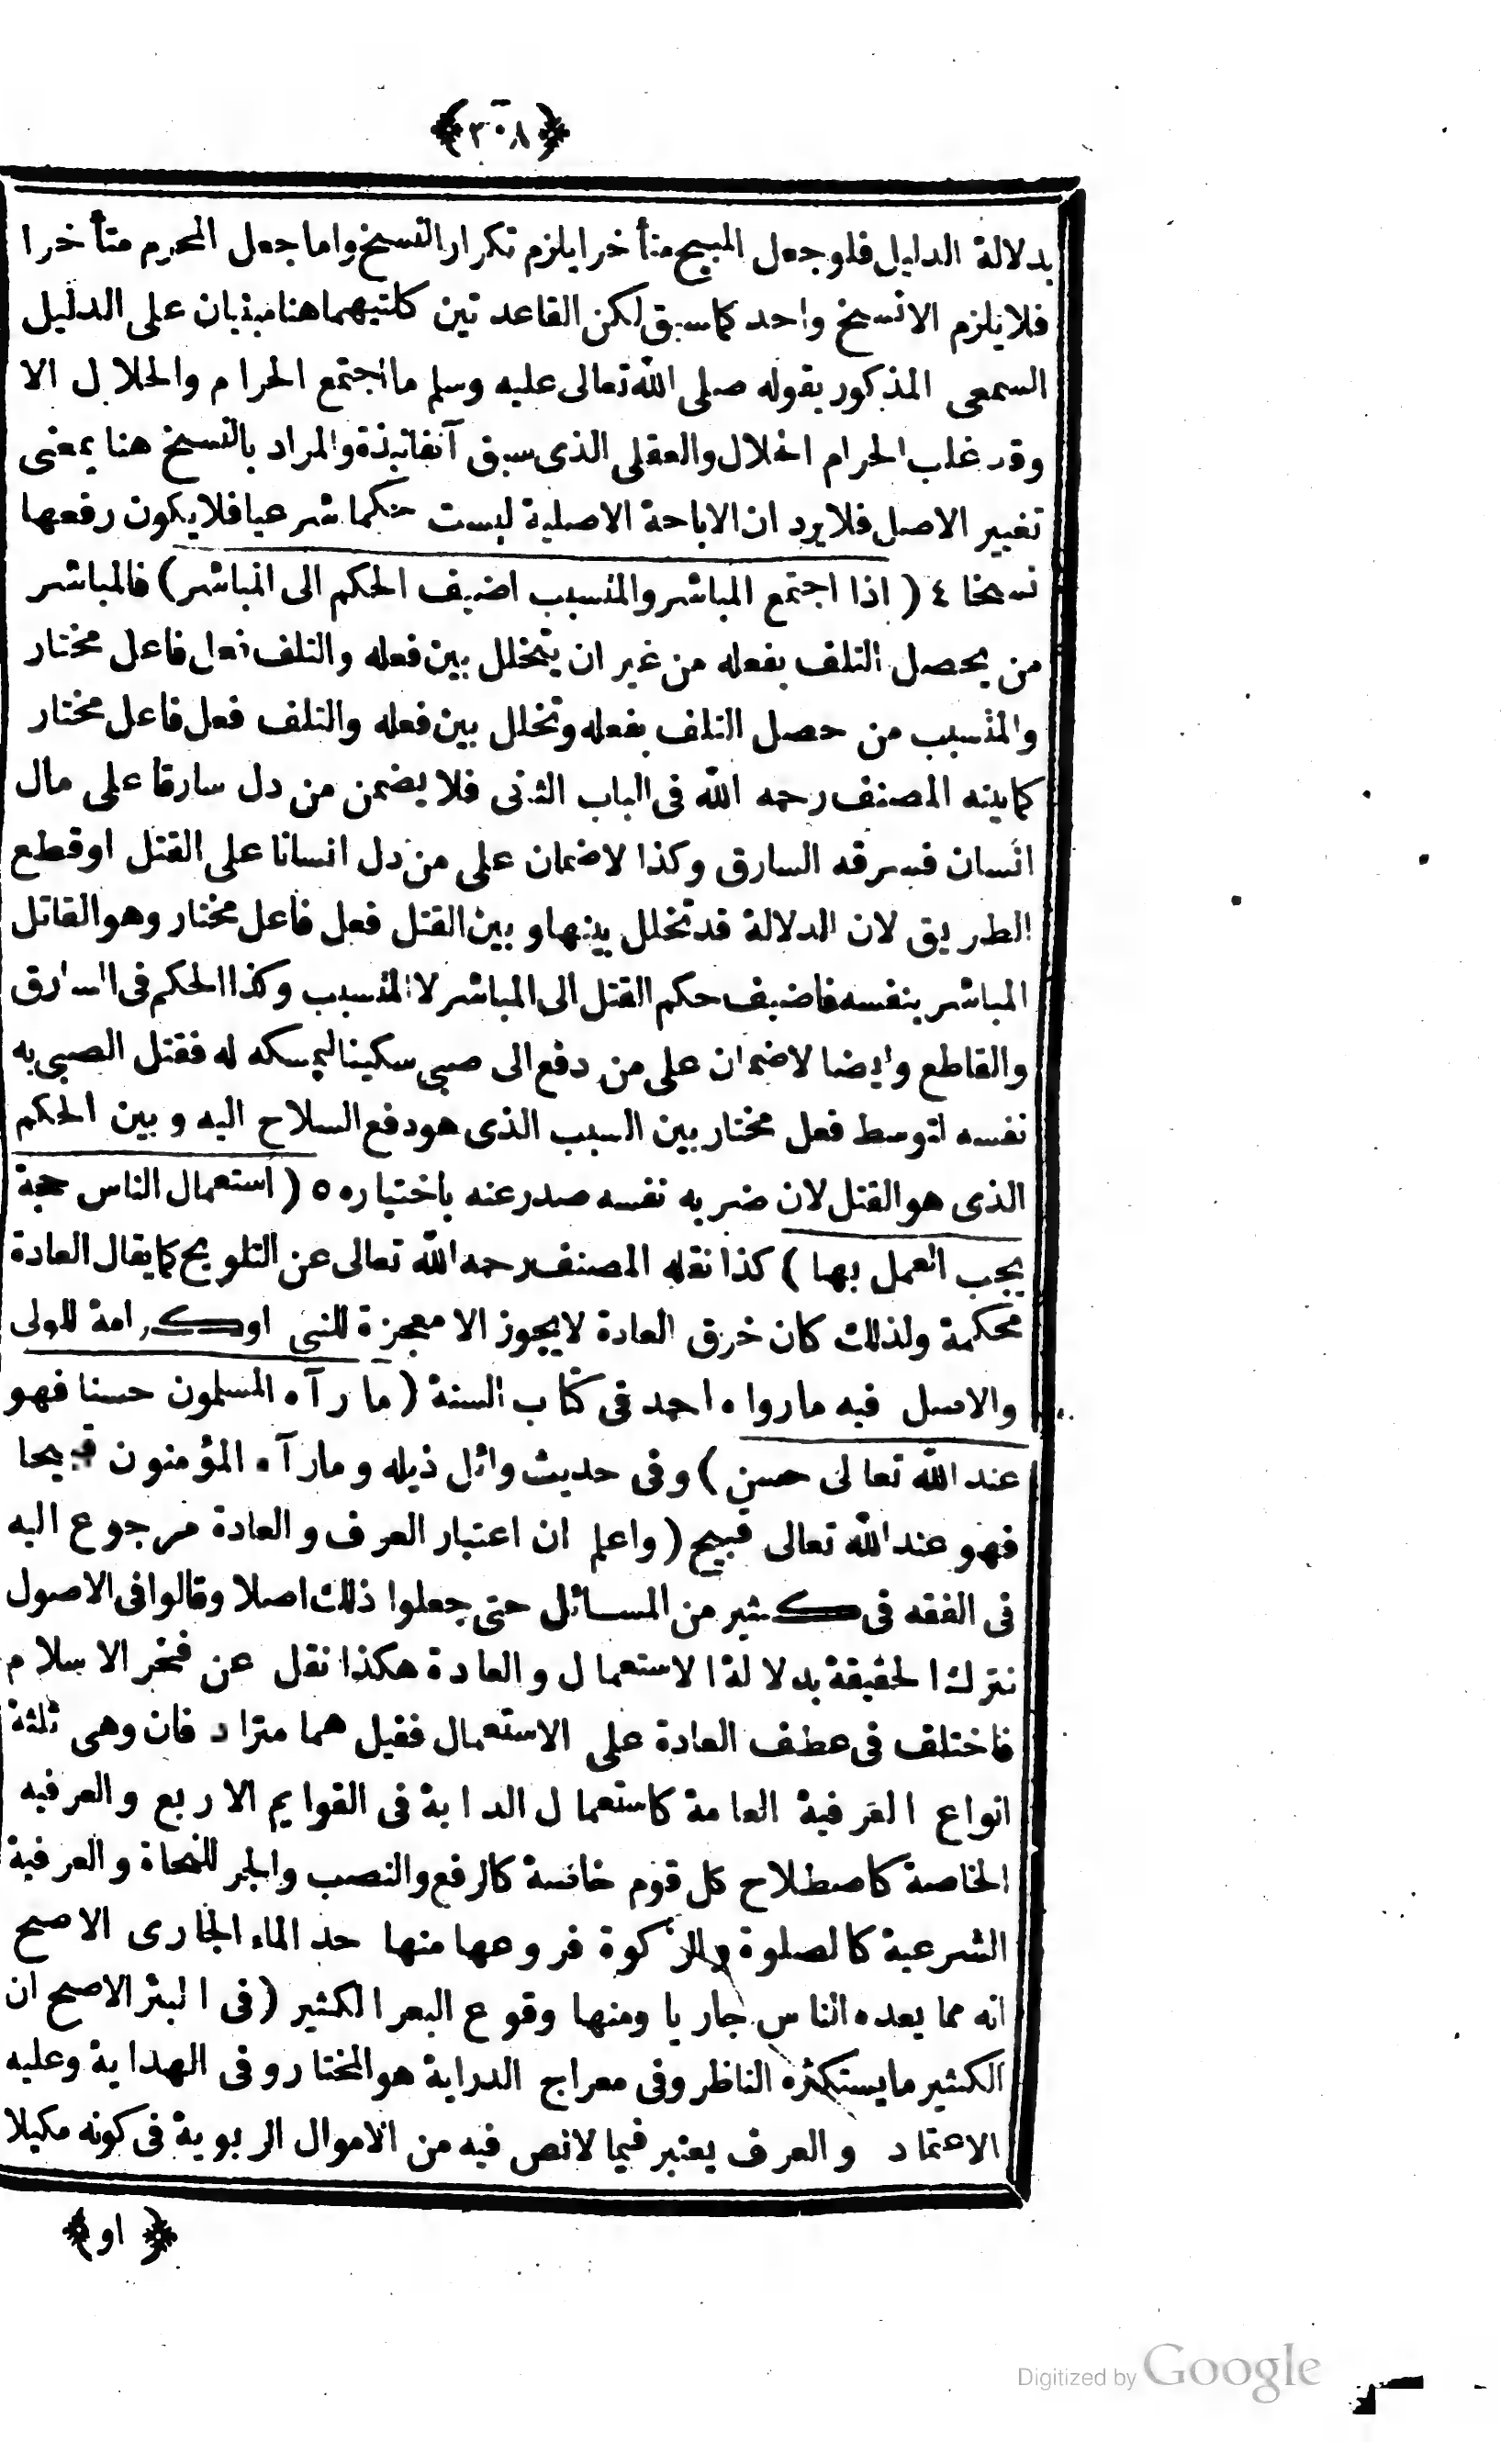 ﴿٣٠٨﴾
بدلالة الدليل فلو جعل المبيح متأخرا يلزم تكرار النسخ واما جعل المحرم متأخرا
فلا يلزم الا نسخ واحد كما سبق لكن القاعدتين كلتيهما هنا مبنيان على الدليل
السمعى المذكور بقوله صلى الله تعالى عليه وسلم ما اجتمع الحرام والحلال الا
وقد غلب الحرام الحلال والعقلى الذى سبق آنفا نبذة والمراد بالنسخ هنا بمعنى
تغيير الاصل فلا يرد ان الاباحة الاصلية ليست حكما شرعيا فلا يكون رفعها
نسخا ٤ ( اذا اجتمع المباشر والمتسبب اضيف الحكم الى المباشر ) فالمباشر
من يحصل التلف بفعله من غير ان يتخلل بين فعله والتلف فعل فاعل مختار
والمتسبب من حصل التلف بفعله وتخلل بين فعله والتلف فعل فاعل مختار
كما بينه المصنف رحمه الله فى الباب الثانى فلا يضمن من دل سارقا على مال
انسان فسرقه السارق وكذا لا ضمان على من دل انسانا على القتل او قطع
الطريق لان الدلالة قد تخلل بينها وبين القتل فعل فاعل مختار وهو القاتل
المباشر بنفسه فاضيف حكم القتل الى المباشر لا المتسبب وكذا الحكم فى السارق
والقاطع وايضا لا ضمان على من دفع الى صبى سكينا ليمسكه له فقتل الصبى به
نفسه لتوسط فعل مختار بين السبب الذى هو دفع السلاح اليه وبين الحكم
الذى هو القتل لان ضربه نفسه صدر عنه باختياره ٥ ( استعمال الناس حجة
يجب العمل بها ) كذا نقله المصنف رحمه الله تعالى عن التلويح كما يقال العادة
محكمة ولذلك كان خرق العادة لا يجوز الا معجزة للنبى او كرامة للولى
والاصل فيه ما رواه احمد فى كتاب السنة ( ما رآه المسلمون حسنا فهو
عند الله تعالى حسن ) وفى حديث وائل ذيله وما رآه المؤمنون قبيحا
فهو عند الله تعالى قبيح ( واعلم ان اعتبار العرف والعادة مرجوع اليه
فى الفقه فى كثير من المسائل حتى جعلوا ذلك اصلا وقالوا فى الاصول
نترك الحقيقة بدلالة الاستعمال والعادة هكذا نقل عن فخر الاسلام
فاختلف فى عطف العادة على الاستعمال فقيل هما مترادفان وهى ثلثة
انواع العرفية العامة كاستعمال الدابة فى القوايم الاربع والعرفيه
الخاصة كاصطلاح كل قوم خاصة كالرفع والنصب والجر للنحاة والعرفية
الشرعية كالصلوة والزكوة فروعها منها حد الماء الجارى الاصح
انه مما يعده الناس جاريا ومنها وقوع البعر الكثير ( فى البئر الاصح ان
الكثير ما يستكثره الناظر وفى معراج الدراية هو المختار وفى الهداية وعليه
الاعتماد والعرف يعتبر فيما لا نص فيه من الاموال الربوية فى كونه مكيلا
﴿ او ﴾
Digitized by Google